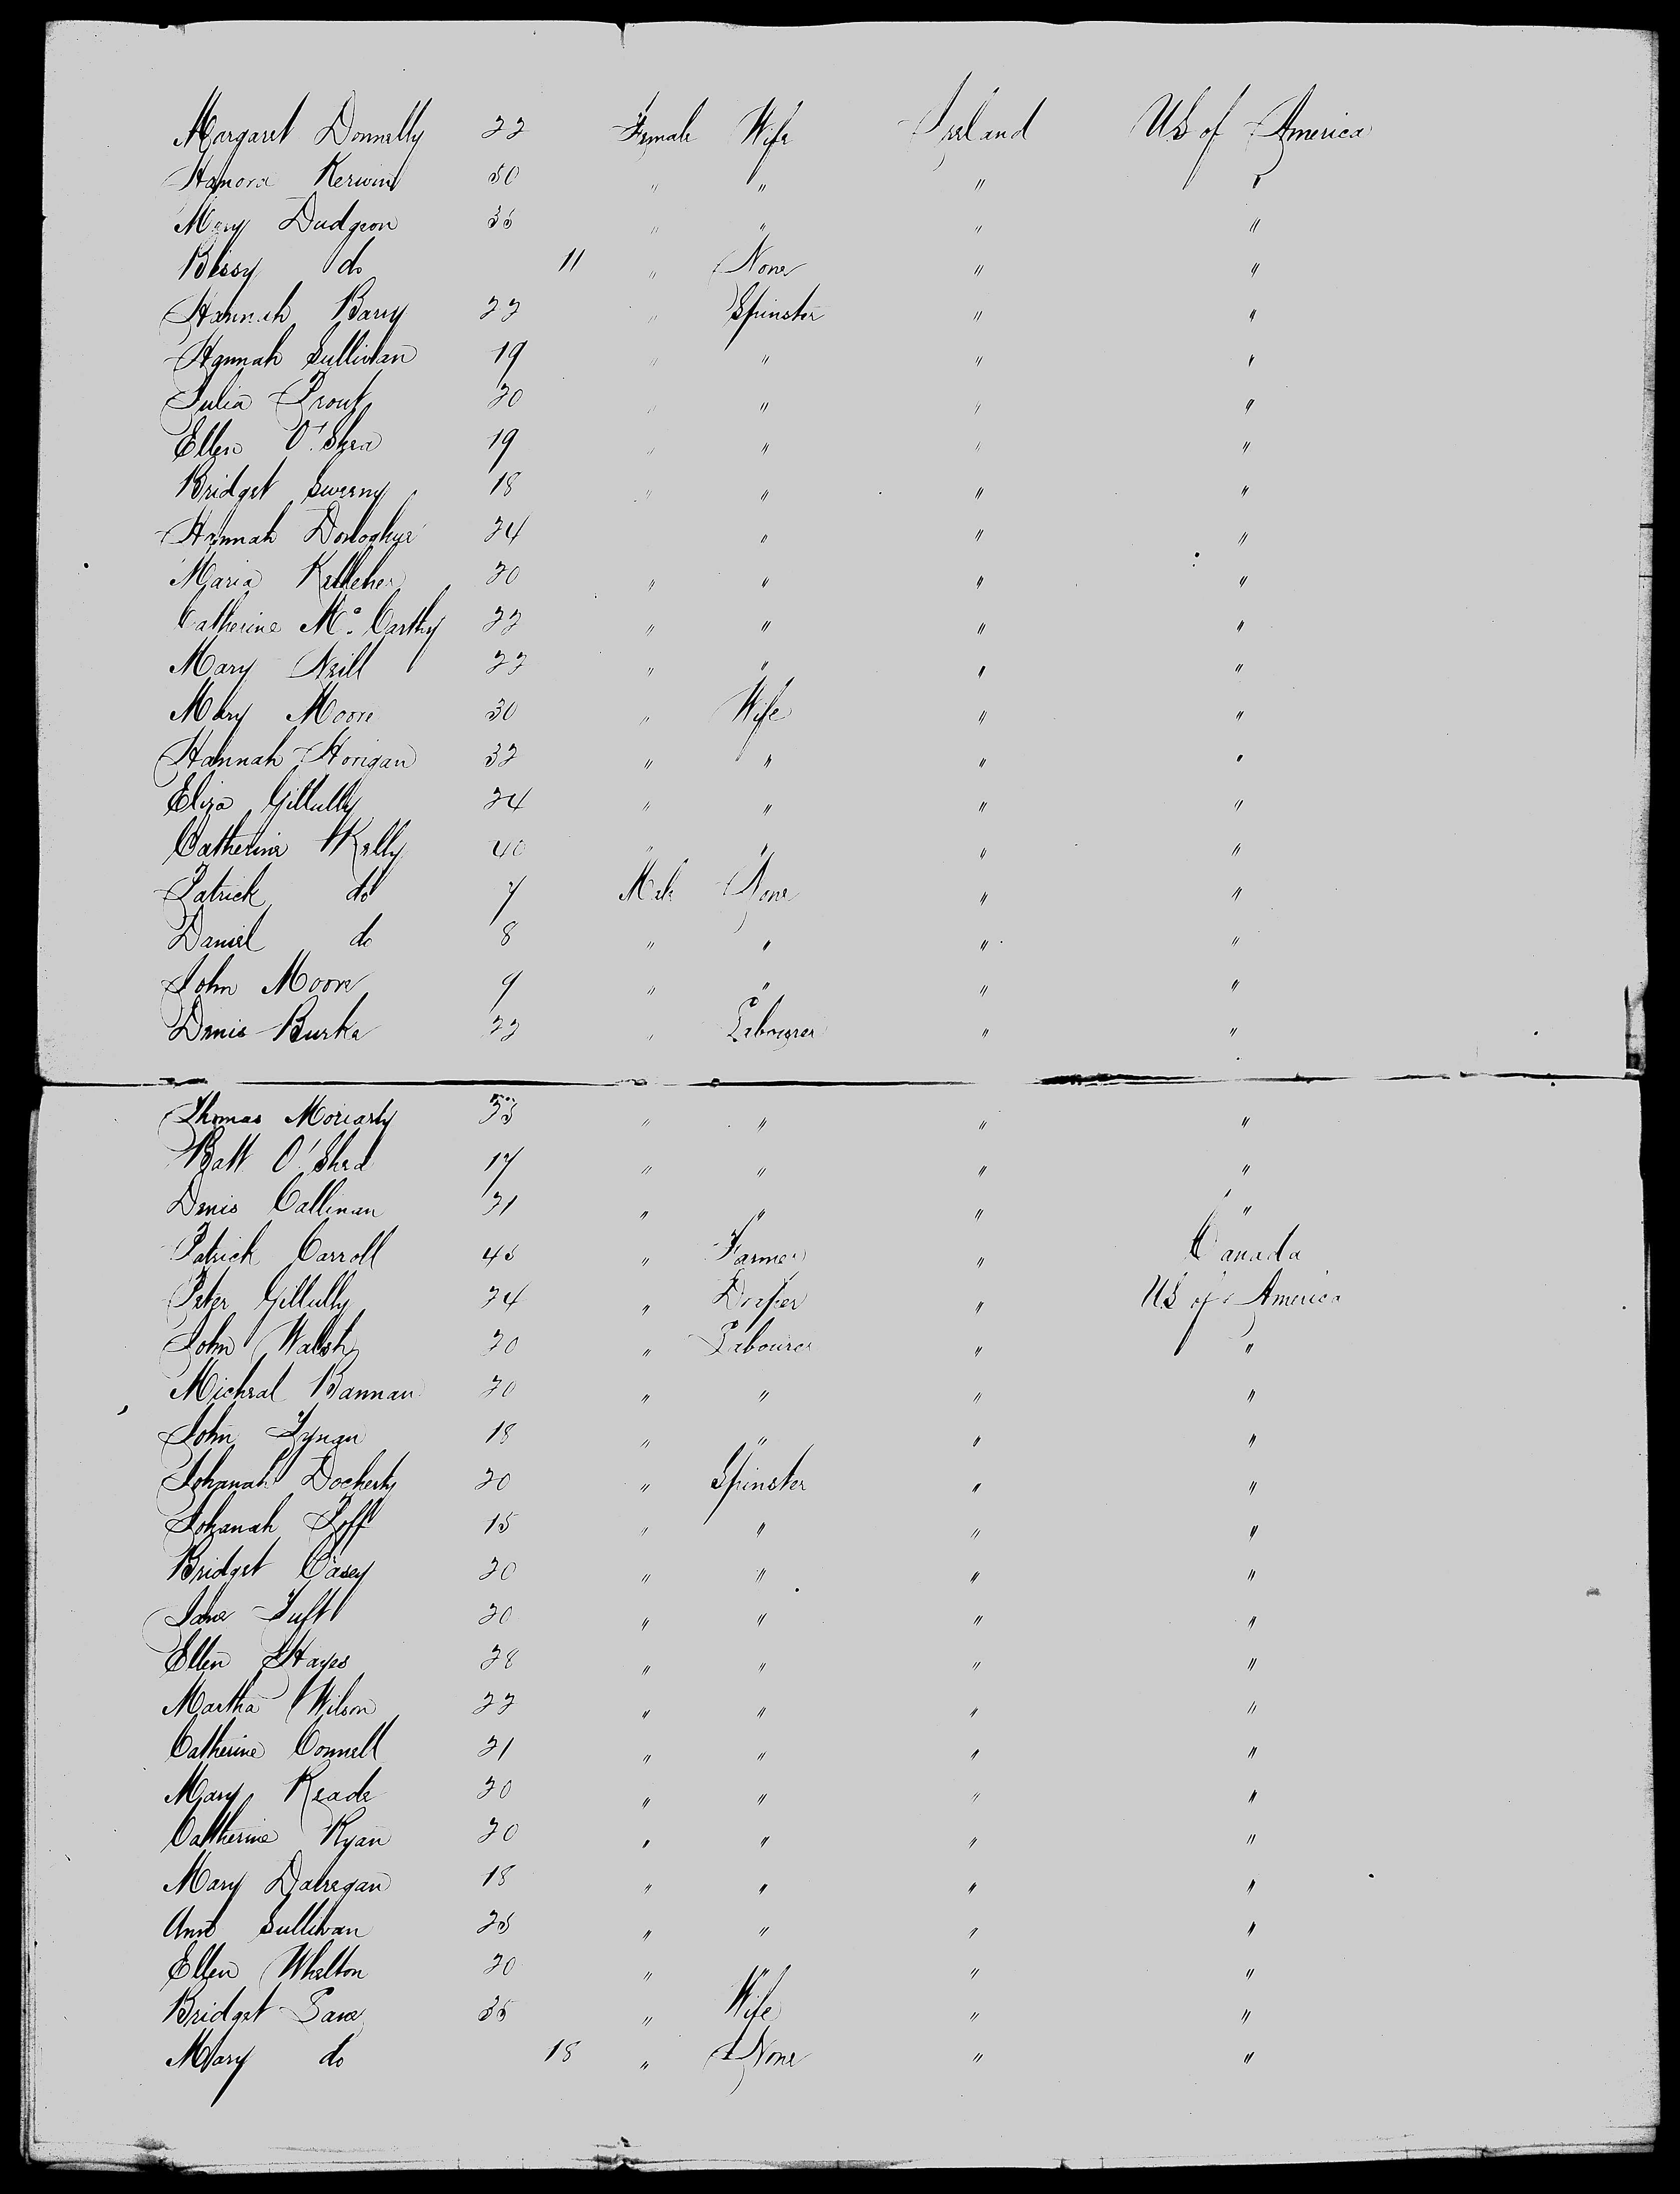 Margaret Donnelly 22 Female Wife Ireland US of America
Hanora Kerwin 50 " " " "
Mary Dudgeon 35 " " " "
Bessy do 11 " None " "
Hannah Barry 22 " Spinster " "
Hannah Sullivan 19 " " " "
Julia Prout 20 " " " "
Ellen O'Shea 19 " " " "
Bridget Sweeny 18 " " " "
Hannah Donoghue 24 " " "
Maria Kelleher 20 " " " "
Catherine Mc Carthy 22 " " " "
Mary Neill 22 " " " "
Mary Moore 30 " Wife " "
Hannah Horigan 32 " " " "
Eliza Gillully 24 " " " "
Catherine Kelly 40 " " " "
Patrick do 7 Male None " "
Daniel do 8 " " " "
John Moore 9 " " " "
Denis Burke 22 " Labourer " "
Thomas Moriarty " " " "
Batt O'Shea 17 " " " "
Denis Callinan 21 " " " "
Patrick Carroll 45 " Farmer " Canada
Peter Gillully 24 " Draper " US of America
John Walsh 20 " Labourer " "
Michael Bannan 20 " " " "
John Lynan 18 " " " "
Johanah Docherty 20 " Spinster " "
Johanah 15 " " " "
Bridget Casey 20 " " " "
Jane Tuft 20 " " " "
Ellen Hayes 28 " " " "
Martha Wilson 22 " " " "
Catherine Connell 21 " " " "
Mary Reade 20 " " " "
Catherine Ryan 20 " " " "
Mary Dalregan 18 " " " "
Ann Sullivan 25 " " " "
Ellen Whelton 20 " " " "
Bridget Lane 35 " Wife " "
Mary do 18 " None " "